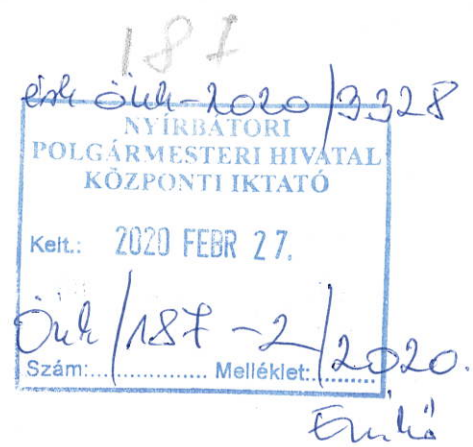 187
érk Önk-2020/3328
NYÍRBÁTORI
POLGÁRMESTERI HIVATAL
KÖZPONTI IKTATÓ
Kelt.: 2020 FEBR 27.
Önk/187-2/2020.
Szám:.................. Melléklet:...........
Enikő